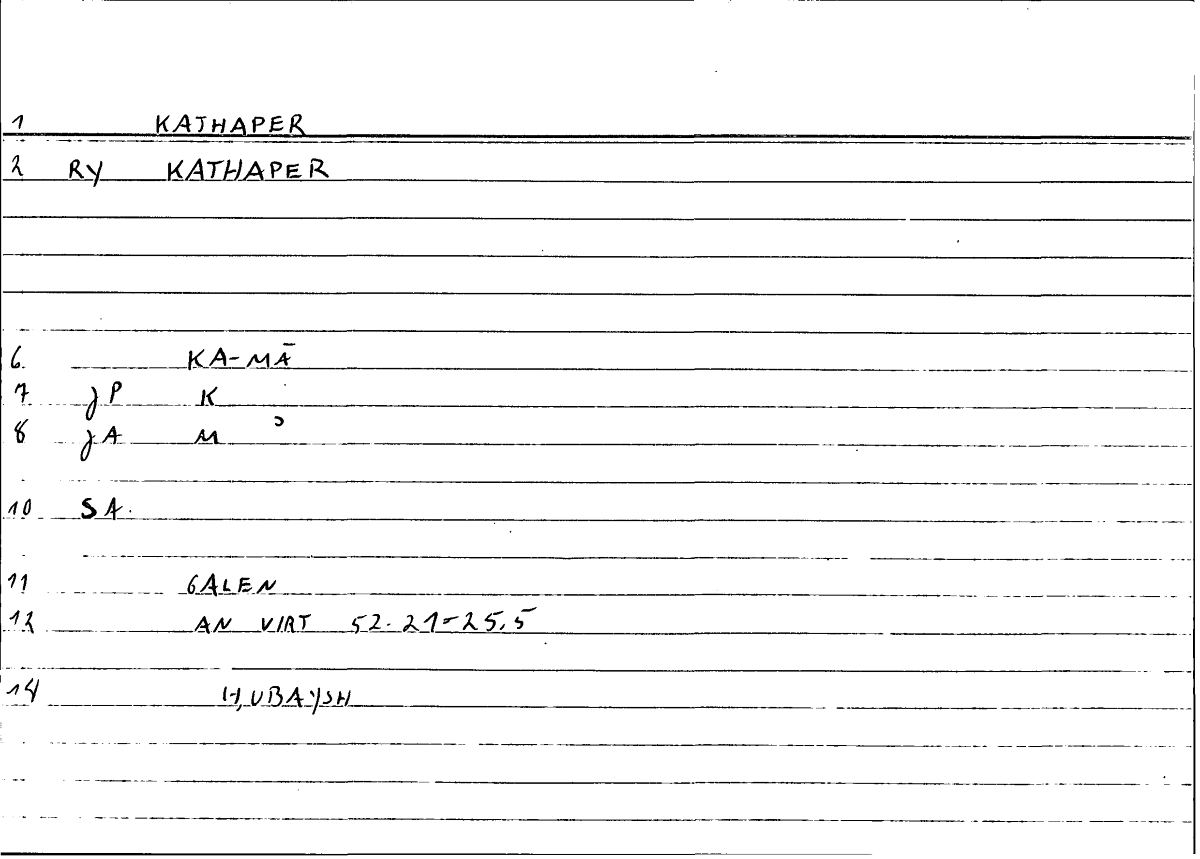 1 KATHAPER
2 RY KATHAPER
6. KA-MĀ
7. JP K
8 JA M ɔ
10 SA.
11 GALEN
12 AN VIRT 52.21-25.5
14 ḤUBAYSH